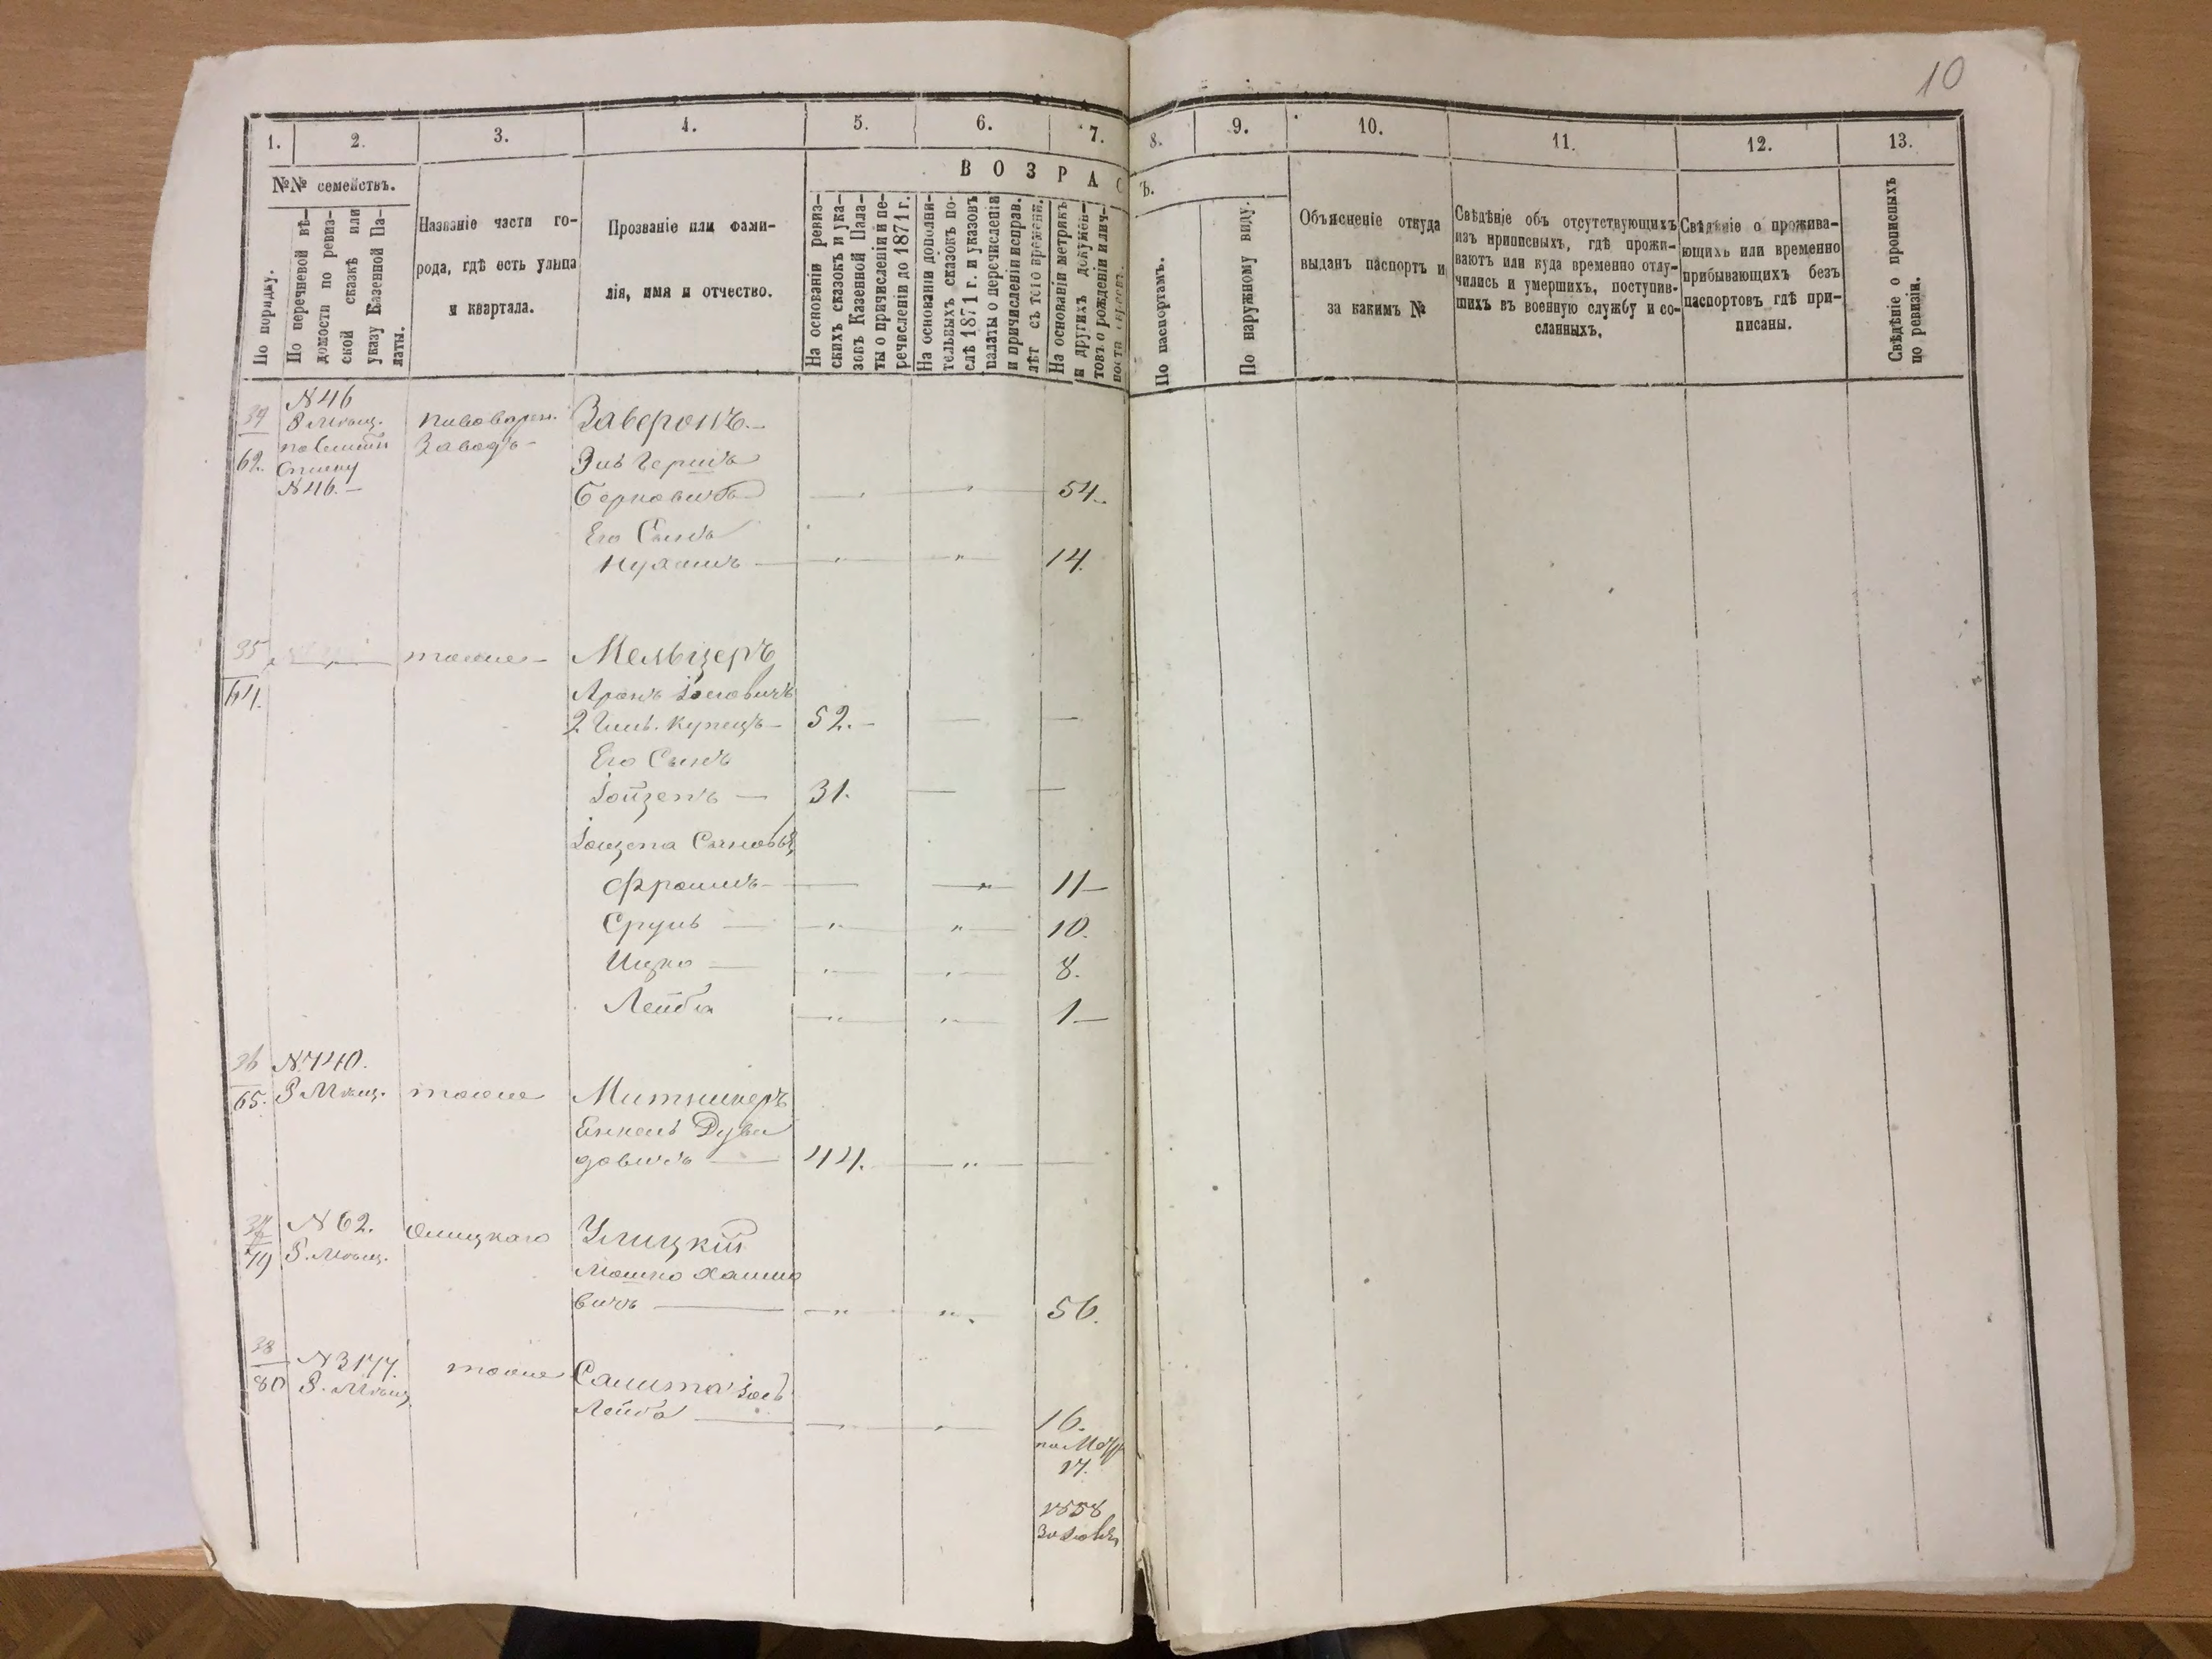 10
1.
2.
3.
4.
5.
6.
7.
8.
9.
10.
11.
12.
13.
№№ семействъ.
ВОЗРАС
Ъ.
По порядку.
По перечневой вѣ-
домости по ревиз-
ской сказкѣ или
указу Казенной Па-
латы.
Названіе части го-
рода, гдѣ есть улица
и квартала.
Прозваніе или фами-
лія, имя и отчество.
На основаніи ревиз-
скихъ сказокъ и ука-
зовъ Казенной Пала-
ты о причисленіи и пе-
речисленіи до 1871 г.
На основаніи дополни-
тельныхъ сказокъ по-
слѣ 1871 г. и указовъ
палаты о перечисленіи
и причисленіи исправ.
лѣт съ того времени.
На основаніи метрикъ
и другихъ докумен-
товъ о рожденіи и лич-
По паспортамъ.
По наружному виду.
Объясненіе откуда
выданъ паспортъ и
за какимъ №
Свѣдѣніе объ отсутствующихъ
изъ приписныхъ, гдѣ прожи-
ваютъ или куда временно отлу-
чились и умершихъ, поступив-
шихъ въ военную службу и со-
сланныхъ.
Свѣдѣніе о прожива-
ющихъ или временно
прибывающихъ безъ
паспортовъ гдѣ при-
писаны.
Свѣдѣніе о прописныхъ
по ревизіи.
34
62.
N 46
Р Мѣщ.
N 46.—
Пивоварен.
Заводъ—
Заверонъ.—
Берковичъ 54.
Его Сынъ
14.
35
64.
тоже— Мельцеръ
Аронъ Іосевичъ
2 Гиль. Купецъ— 52.—
Его Сынъ
Іойзепъ — 31.
Іойзепа Сыновья
Фроимъ— 11—
Сруль — 10.
Ицко — 8.
Лейба 1—
36
65.
N 740.
Р Мѣщ. тоже Митникеръ
Янкель Дуви
довичъ — 44.
37
79
N 62.
Р. Мѣщ.
Олицкаго Улицкій
Мошко Хаимо
вичъ — 56.
38
80
N 3177.
Р. Мѣщ.
тоже Салита Іосъ
Лейба — 16.
17.
1858